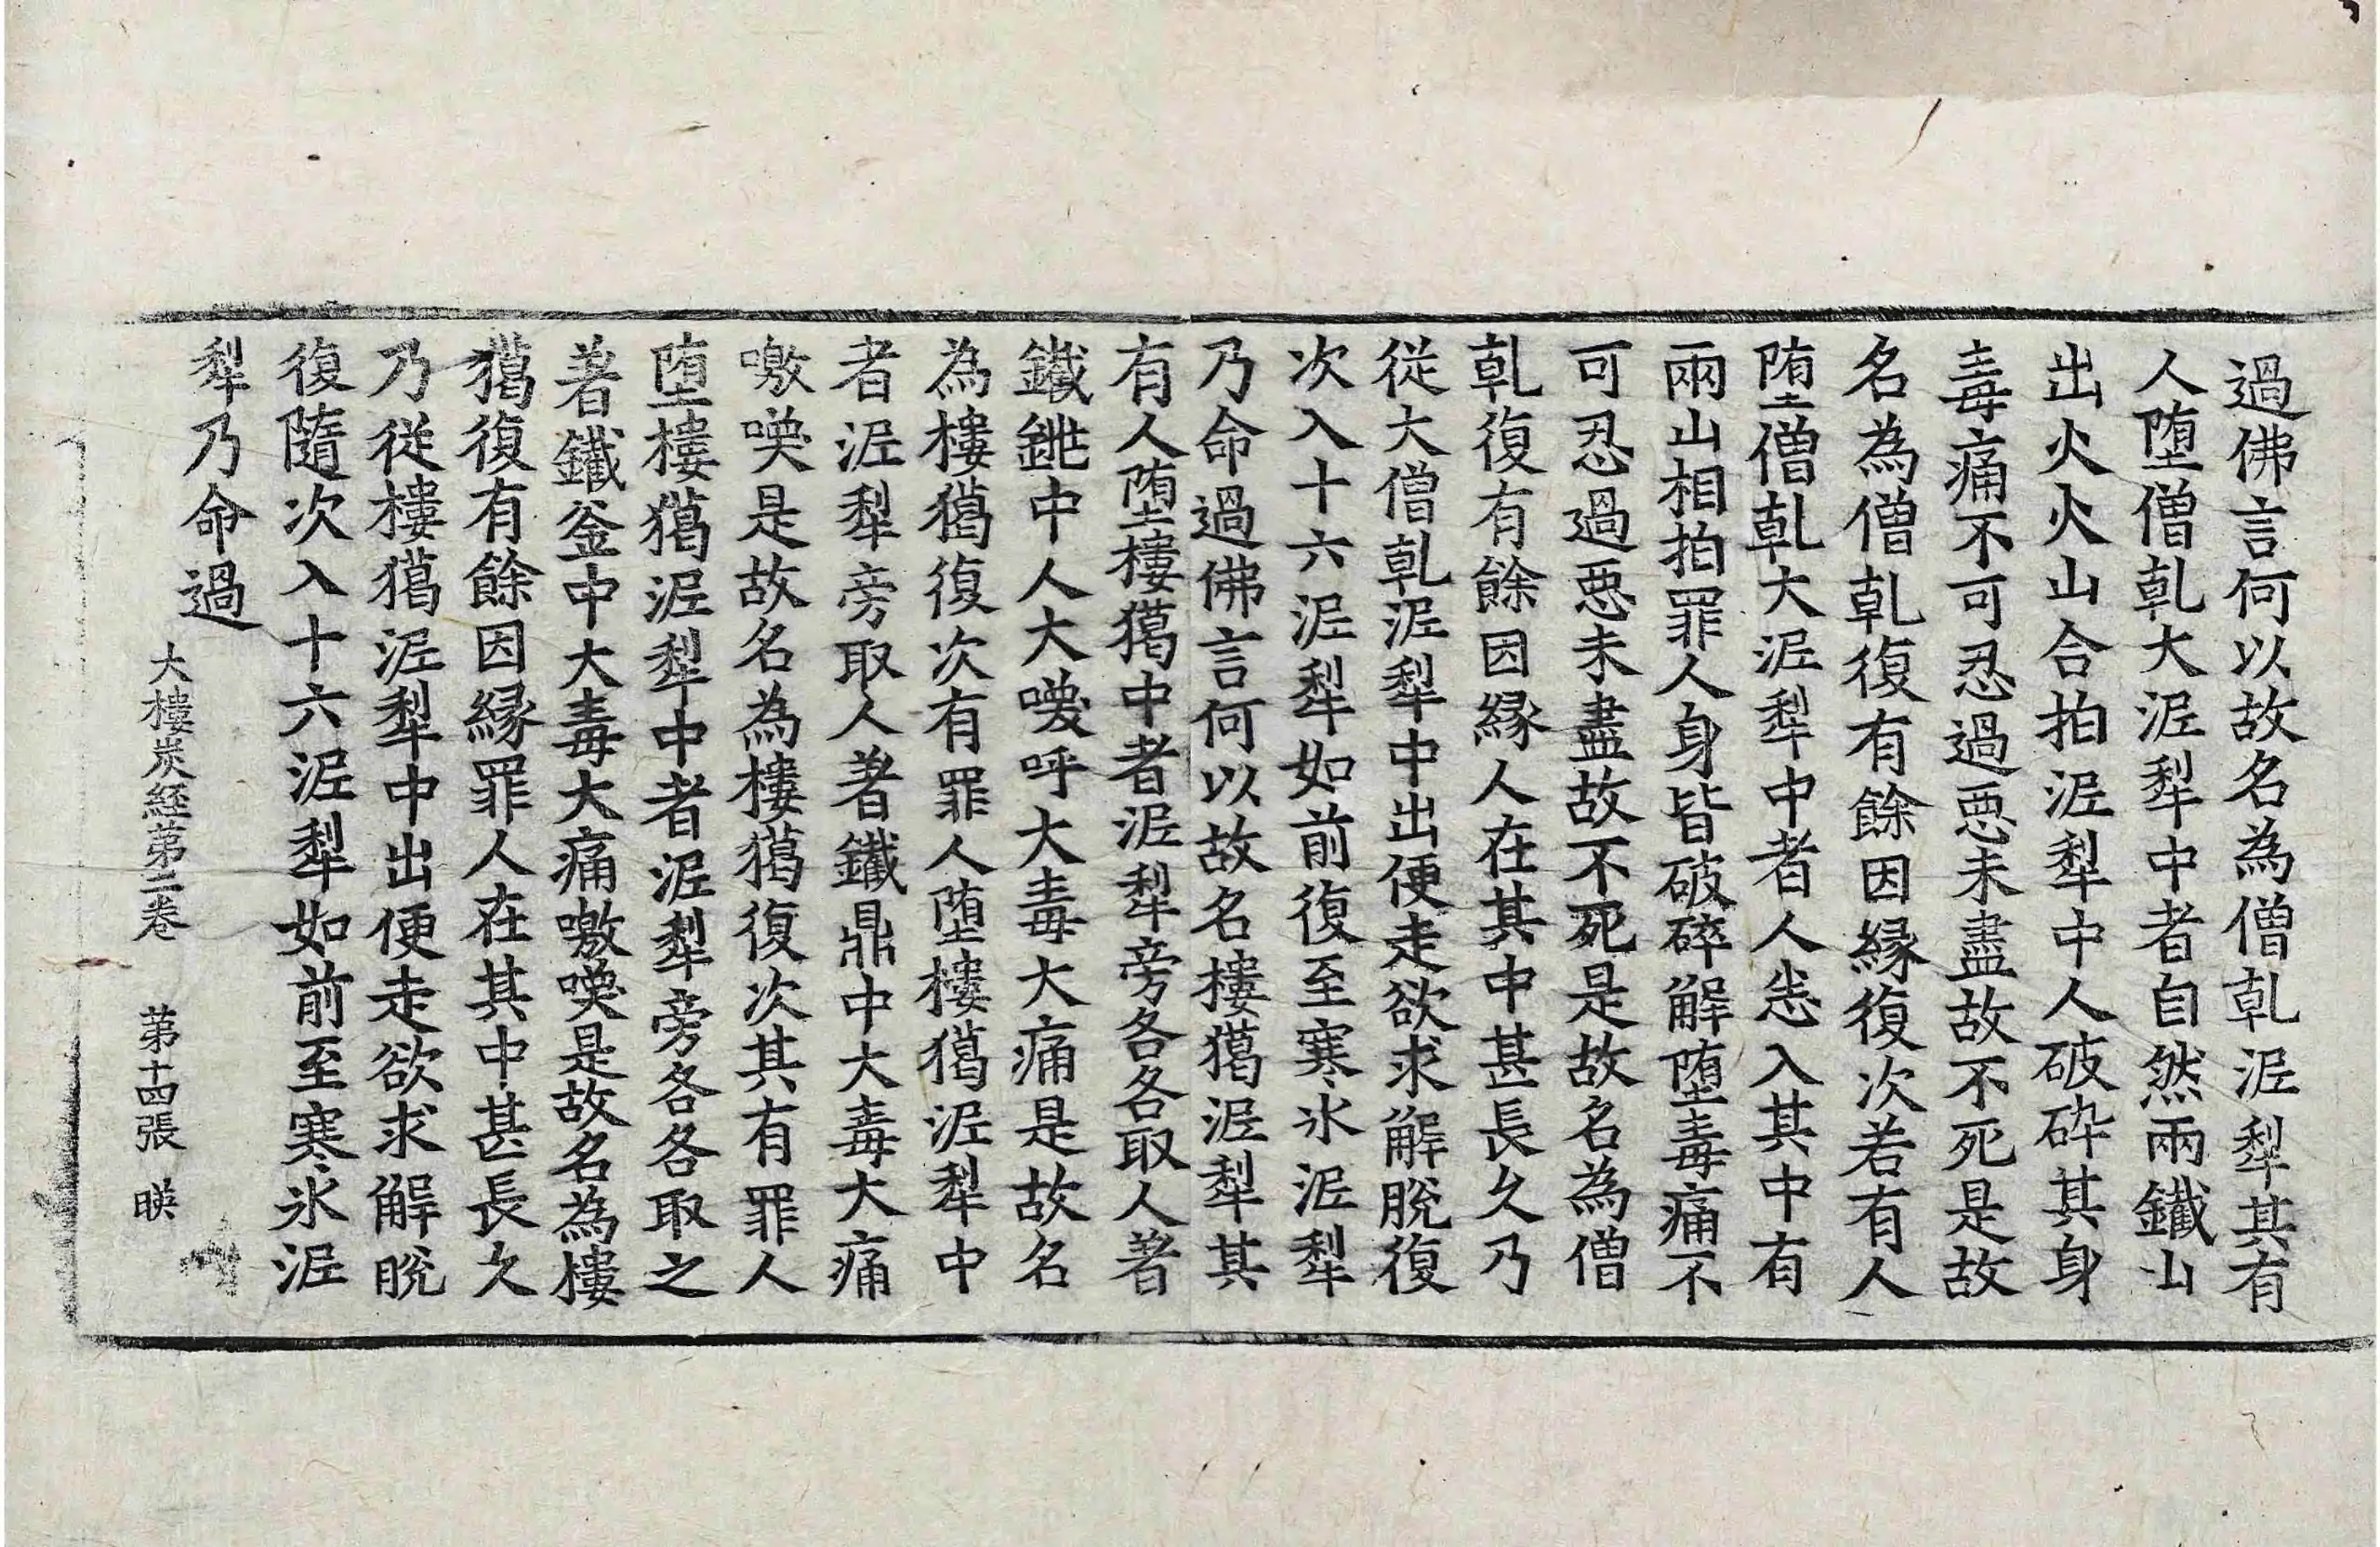 過佛言何以故名為僧乹泥犁其有
人墮僧乹大泥犁中者自然兩鐵山
出火火山合拍泥犁中人破碎其身
毒痛不可忍過惡未盡故不死是故
名為僧乹復有餘因緣復次若有人
墮僧乹大泥犁中者人恙入其中有
兩山相拍罪人身皆破碎解墮毒痛不
可忍過惡未盡故不死是故名為僧
乹復有餘因緣人在其中甚長久乃
從大僧乹泥犁中出便走欲求解脫復
次入十六泥犁如前復至寒氷泥犁
乃命過佛言何以故名樓獦泥犁其
有人墮樓獦中者泥犁旁各各取人著
鐵銚中人大嚘呼大毒大痛是故名
為樓獦復次有罪人墮樓獦泥犁中
者泥犁旁取人著鐵鼎中大毒大痛
噭喚是故名為樓獦復次其有罪人
墮樓獦泥犁中者泥犁旁各各取之
著鐵釜中大毒大痛噭喚是故名為樓
獦復有餘因緣罪人在其中甚長久
乃從樓獦泥犁中出便走欲求解脫
復隨次入十六泥犁如前至寒氷泥
犁乃命過
大樓炭経苐二卷 苐十四張 暎